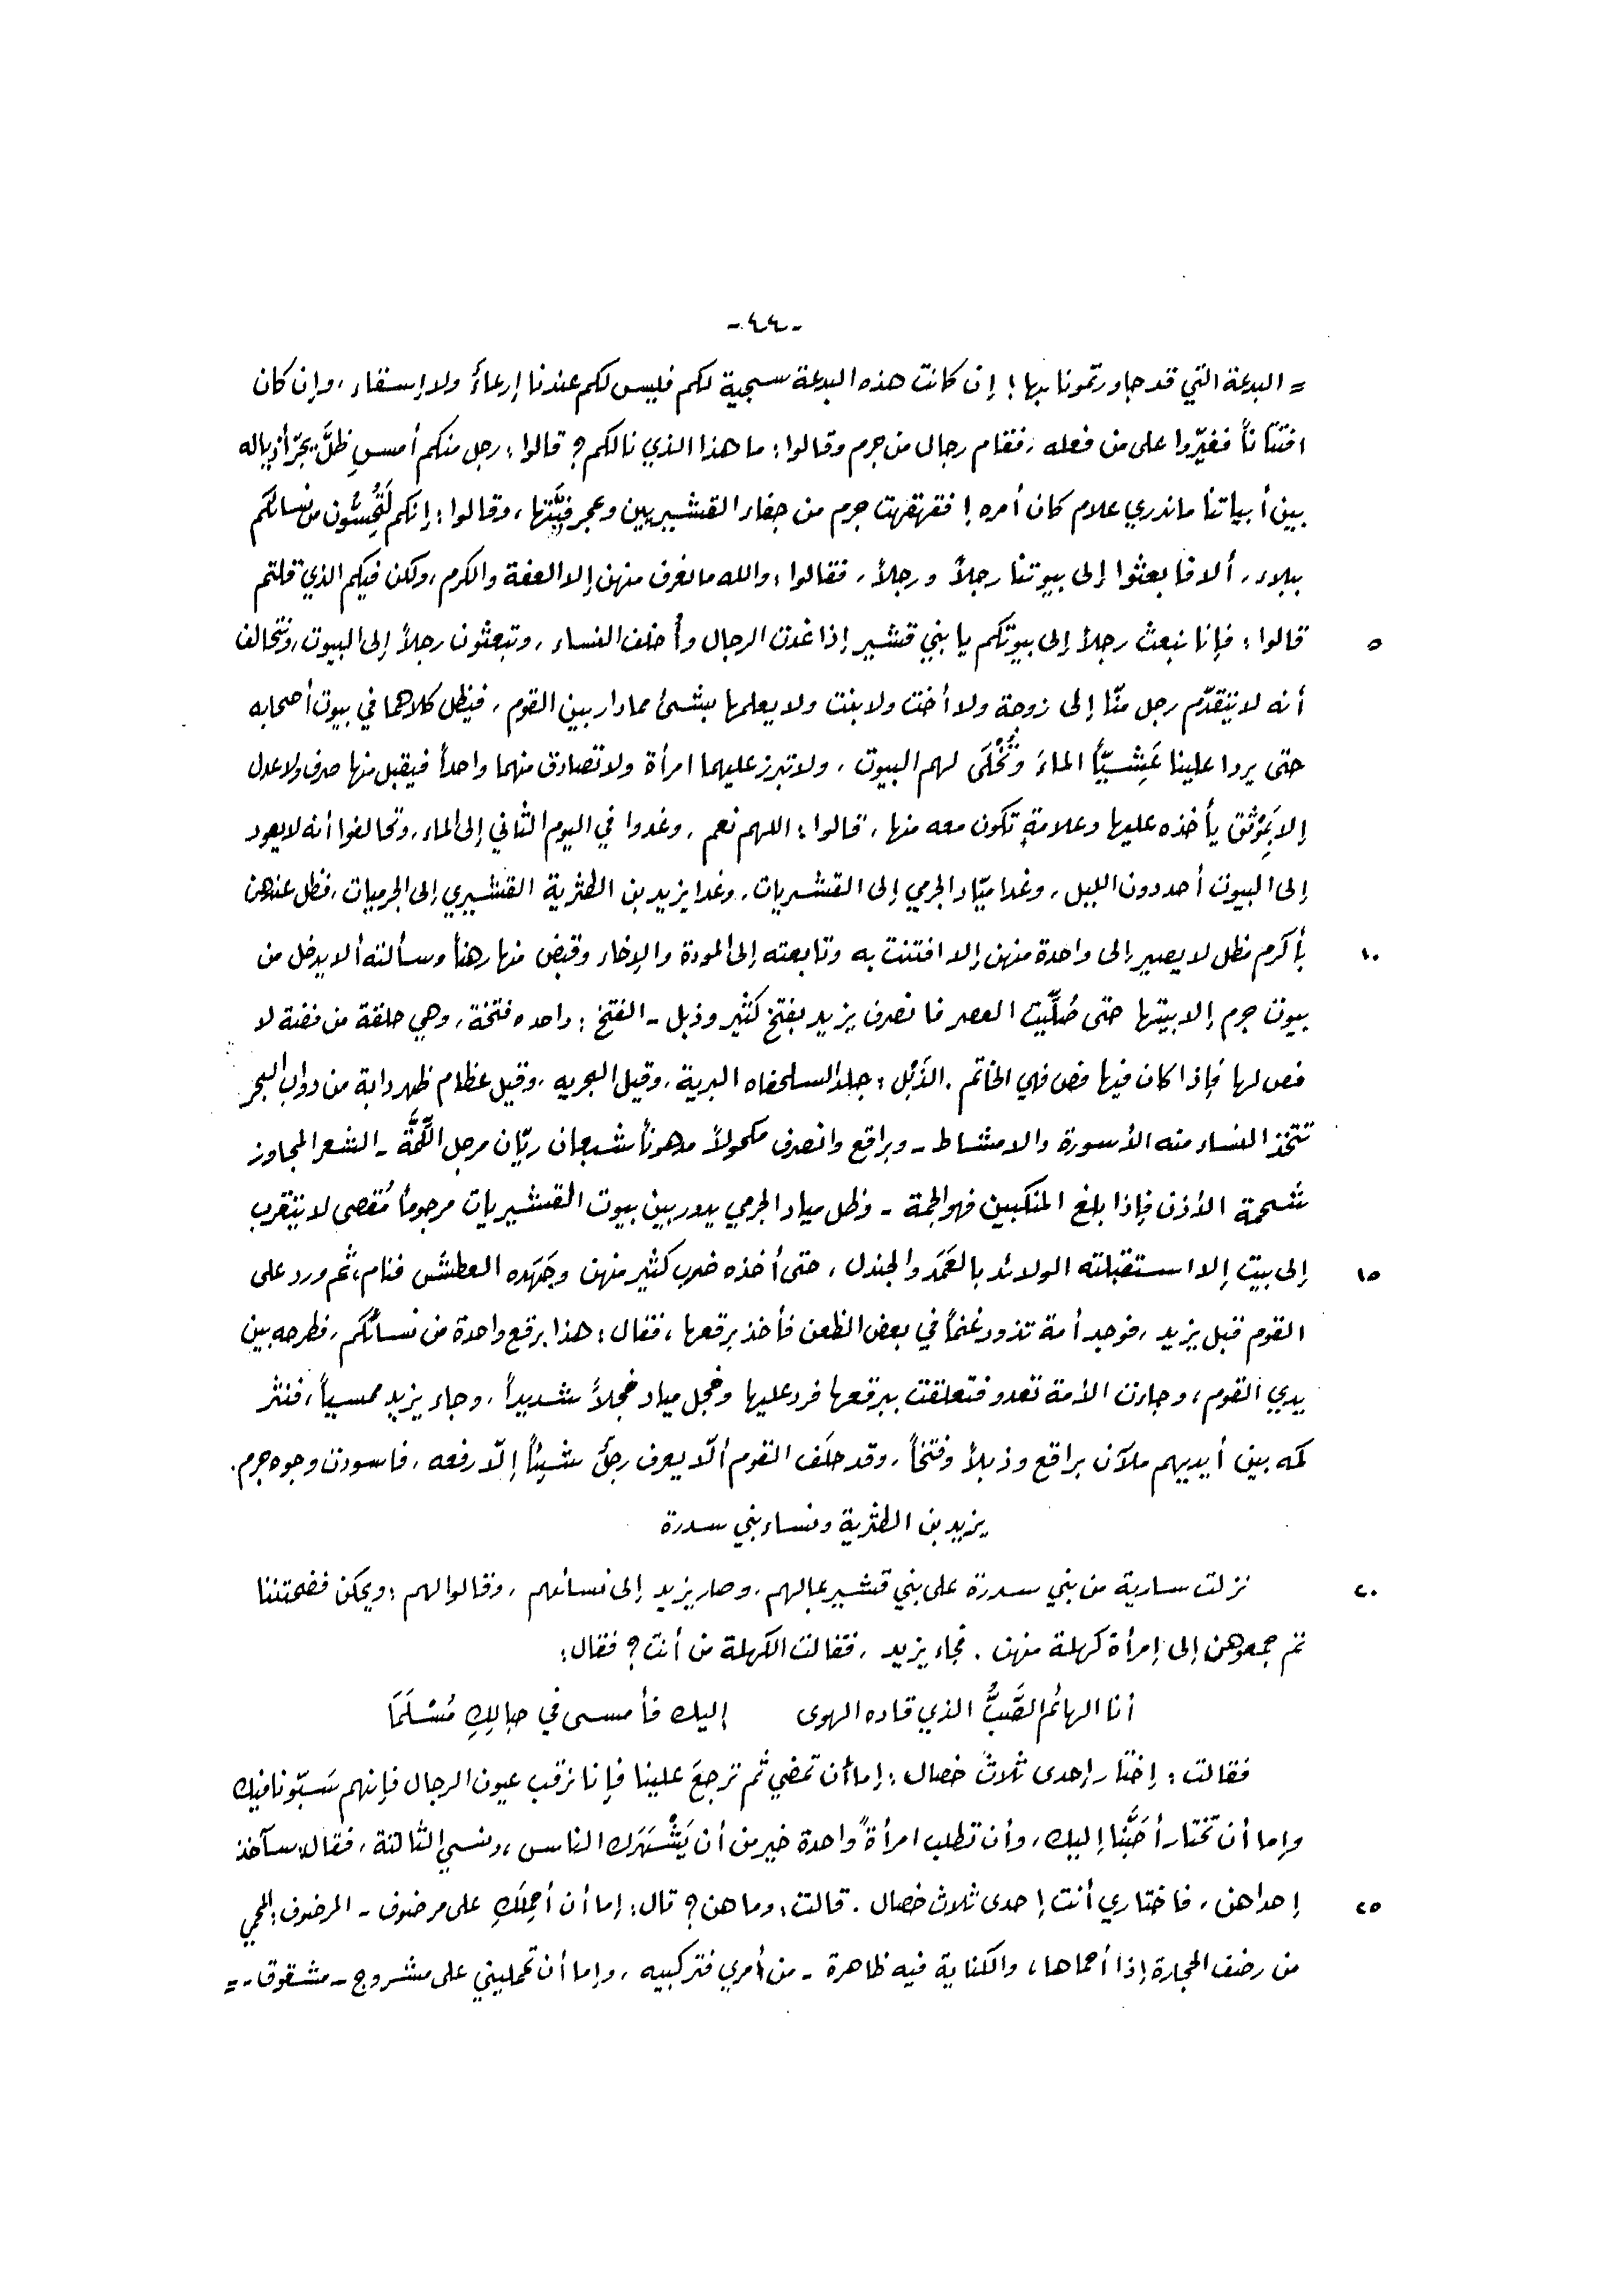 -٤٤-
= البدعة التي قد جاورتمونا بها! إن كانت هذه البدعة سجية لكم فليس لكم عندنا إرعاءً ولا إسقاء، وإن كان
افتتاناً فغيّروا على من فعله، فقام رجال من جرم وقالوا: ما هذا الذي نالكم؟ قالوا: رجل منكم أمسِ ظلَّ يجرّ أذياله
بين أبياتنا ما ندري علام كان أمره! فقهقهت جرم من جفاء القشيريين وعجرفيَّتها، وقالوا: إنكم لَتُحِسُّون من نسائكم
ببلاء، ألا فابعثوا إلى بيوتنا رجلاً ورجلاً، فقالوا: والله ما نعرف منهن إلا العفة والكرم، ولكن فيكم الذي قلتم
٥ قالوا: فإنا نبعث رجلاً إلى بيوتكم يا بني قشير إذا غدت الرجال وأُخلف النساء، وتبعثون رجلاً إلى البيوت، ونتحالف
أنه لا يتقدّم رجل منّا إلى زوجة ولا أخت ولا بنت ولا يعلمها بشئ مما دار بين القوم، فيظل كلاهما في بيوت أصحابه
حتى يردا علينا عَشِيّاً الماءَ وتُخْلَى لهم البيوت، ولا تبرز عليهما امرأة ولا تصادق منهما واحداً فيقبل منها صرف ولا عدل
إلا بِمَوْثِق يأخذه عليها وعلامةٍ تكون معه منها، قالوا: اللهم نعم، وغدوا في اليوم الثاني إلى الماء، وتحالفوا أنه لا يعود
إلى البيوت أحد دون الليل، وغدا ميّاد الجرمي إلى القشيريات، وغدا يزيد بن الطثرية القشيري إلى الجرميات، فظل عندهن
١٠ بأكرم مظل لا يصير إلى واحدة منهن إلا افتتنت به وتابعته إلى المودة والإخاء وقبض منها رهناً وسألته ألا يدخل من
بيوت جرم إلا بيتها حتى صُلِّيت العصر فانصرف يزيد بفتخ كثير وذبل - الفتخ: واحده فتخة، وهي حلقة من فضة لا
فص لها فإذا كان فيها فص فهي الخاتم. الذَبْل: جلد السلحفاه البرية، وقيل البحريه، وقيل عظام ظهر دابة من دواب البحر
تتخذ النساء منه الأسورة والامشاط - وبراقع وانصرف مكحولاً مدهوناً شبعان ريّان مرجل اللِّمَّة - الشعر المجاوز
شحمة الأذن فإذا بلغ المنكبين فهو الجمة - وظل مياد الجرمي يدور بين بيوت القشيريات مرجوماً مُقصى لا يتقرب
١٥ إلى بيت إلا استقبلته الولائد بالعَمَد والجندل، حتى أخذه ضرب كثير منهن وجَهَده العطش فنام، ثم ورد على
القوم قبل يزيد، فوجد أمة تذود غنماً في بعض الظعن فأخذ برقعها، فقال: هذا برقع واحدة من نسائكم، فطرحه بين
يدي القوم، وجاءت الأمة تعدو فتعلقت ببرقعها فرد عليها وخجل مياد خجلاً شديداً، وجاء يزيد ممسياً، فنثر
كمه بين أيديهم ملآن براقع وذبلاً وفتخاً، وقد حلَف القوم ألّا يعرف رجلٌ شيئاً إلّا رفعه، فاسودت وجوه جرم.
يزيد بن الطثرية ونساء بني سدرة
٢٠ نزلت سارية من بني سدرة على بني قشير عالهم، وصار يزيد إلى نسائهم، وقالوا لهم: ويحكن فضحتننا
ثم جمعوهن إلى إمرأة كهلة منهن. فجاء يزيد، فقالت الكهلة من أنت؟ فقال:
أنا الهائم الصَّبُّ الذي قاده الهوى إليك فأمسى في حبالِكِ مُسْلَمَا
فقالت: إختار إحدى ثلاثَ خصال: إما أن تمضي ثم ترجعَ علينا فإنا نرقب عيون الرجال فإنهم سَبّونا فيك
وإما أن تختار أحَبَّنا إليك، وأن تطلب امرأةً واحدة خير من أن يَشْهَرَك الناس، ونسي الثالثة، فقال: سآخذ
٢٥ إحداهن، فاختاري أنت إحدى ثلاث خصال. قالت: وما هن؟ قال: إما أن أحمِلَكِ على مرضوف - المرضوف: المحمي
من رضف الحجارة إذا أحماها، والكناية فيه ظاهرة - من أمري فتركبيه، وإما أن تحمليني على مشروج - مشقوق - =